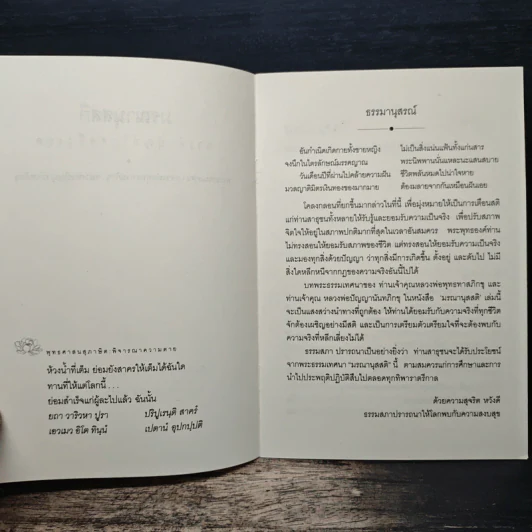 พุทธศาสนสุภาษิต:พิจารณาความตาย
ห้วงน้ำที่เต็ม ย่อมยังสาครให้เต็มได้ฉันใด
ทานที่ให้แต่โลกนี้ . . .
ย่อมสำเร็จแก่ผู้ละไปแล้ว ฉันนั้น
ยถา วาริวหา ปูรา ปริปูเรนฺติ สาครํ
เอวเมว อิโต ทินฺนํ เปตานํ อุปกปฺปติ
ธรรมานุสรณ์
อันกำเนิดเกิดกายทั้งชายหญิง ไม่เป็นสิ่งแน่นแฟ้นทั้งแก่นสาร
จงนึกในไตรลักษณ์มรรคญาณ พระนิพพานนั่นแหละนะแสนสบาย
วันเดือนปีที่ผ่านไปคล้ายความฝัน ชีวิตพลันหมดไปน่าใจหาย
มวลญาติมิตรเงินทองของมากมาย ต้องมลายจากกันเหมือนฝันเอย
โคลงกลอนที่ยกขึ้นมากล่าวในที่นี้ เพื่อมุ่งหมายให้เป็นการเตือนสติ
แก่ท่านสาธุชนทั้งหลายให้รับรู้และยอมรับความเป็นจริง เพื่อปรับสภาพ
จิตใจให้อยู่ในสภาพปกติมากที่สุดในเวลาอันสมควร พระพุทธองค์ท่าน
ไม่ทรงสอนให้ยอมรับสภาพของชีวิต แต่ทรงสอนให้ยอมรับความเป็นจริง
และมองทุกสิ่งด้วยปัญญา ว่าทุกสิ่งมีการเกิดขึ้น ตั้งอยู่ และดับไป ไม่มี
สิ่งใดหลีกหนีจากกฎของความจริงอันนี้ไปได้
บทพระธรรมเทศนาของ ท่านเจ้าคุณหลวงพ่อพุทธทาสภิกขุ และ
ท่านเจ้าคุณ หลวงพ่อปัญญานันทภิกขุ ในหนังสือ "มรณานุสสติ" เล่มนี้
จะเป็นแสงสว่างนำทางที่ถูกต้อง ให้ท่านได้ยอมรับกับความจริงที่ทุกชีวิต
จักต้องเผชิญอย่างมีสติ และเป็นการเตรียมตัวเตรียมใจที่จะต้องพบกับ
ความจริงที่หลีกเลี่ยงไม่ได้
ธรรมสภา ปรารถนาเป็นอย่างยิ่งว่า ท่านสาธุชนจะได้รับประโยชน์
จากพระธรรมเทศนา "มรณานุสสติ" นี้ ตามสมควรแก่การศึกษาและการ
นำไปประพฤติปฏิบัติสืบไปตลอดทุกทิพาราตรีกาล
ด้วยความสุจริต หวังดี
ธรรมสภาปรารถนาให้โลกพบกับความสงบสุข